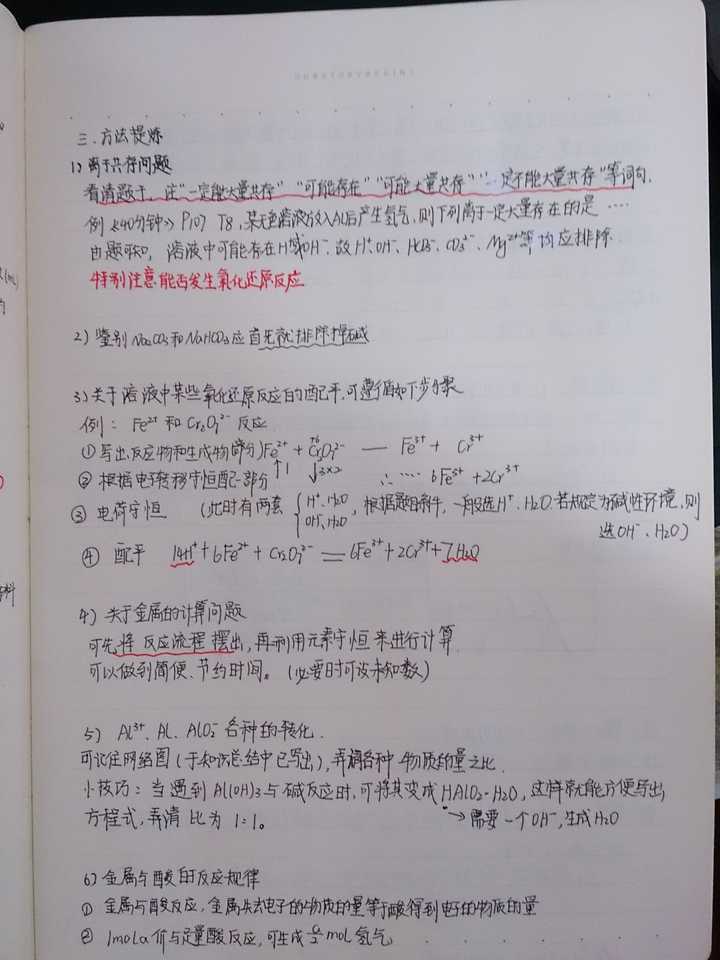 三.方法提炼
1)离子共存问题
看清题干,注"一定能大量共存""可能存在""可能大量共存""一定不能大量共存"等词句,
例《40分钟》P107 T8,某无色溶液放入Al后产生氢气,则下列离子一定大量存在的是……
由题可知,溶液中可能存在H⁺或OH⁻,故H⁺、OH⁻、HCO₃⁻、CO₃²⁻、Mg²⁺等均应排除
特别注意能否发生氧化还原反应
2)鉴别Na₂CO₃和NaHCO₃应首先就排除掉碱
3)关于溶液中某些氧化还原反应的配平,可遵循如下步骤
例: Fe²⁺和Cr₂O₇²⁻反应
①写出反应物和生成物(部分)Fe²⁺ + Cr₂O₇²⁻ — Fe³⁺ + Cr³⁺
+6
②根据电子转移守恒配一部分 ↑1 ↓3×2 ∴ …… 6Fe³⁺ + 2Cr³⁺
③电荷守恒 (此时有两套{H⁺、H₂O OH⁻、H₂O,根据题目条件,一般选H⁺、H₂O.若规定为碱性环境,则
选OH⁻、H₂O)
④ 配平 14H⁺ + 6Fe²⁺ + Cr₂O₇²⁻ == 6Fe³⁺ + 2Cr³⁺ + 7H₂O
4)关于金属的计算问题
可先将反应流程摆出,再利用元素守恒来进行计算.
可以做到简便、节约时间。(必要时可设未知数)
5) Al³⁺、Al、AlO₂⁻各种的转化.
可记住网络图(于知识总结中已写出),弄清各种物质的量之比.
小技巧:当遇到Al(OH)₃与碱反应时,可将其变成HAlO₂·H₂O,这样就能方便写出
方程式,弄清比为1:1。
→需要一个OH⁻,生成H₂O
6)金属与酸的反应规律
① 金属与酸反应,金属失去电子的物质的量等于酸得到电子的物质的量
② 1mol a价与足量酸反应,可生成a/2 mol氢气